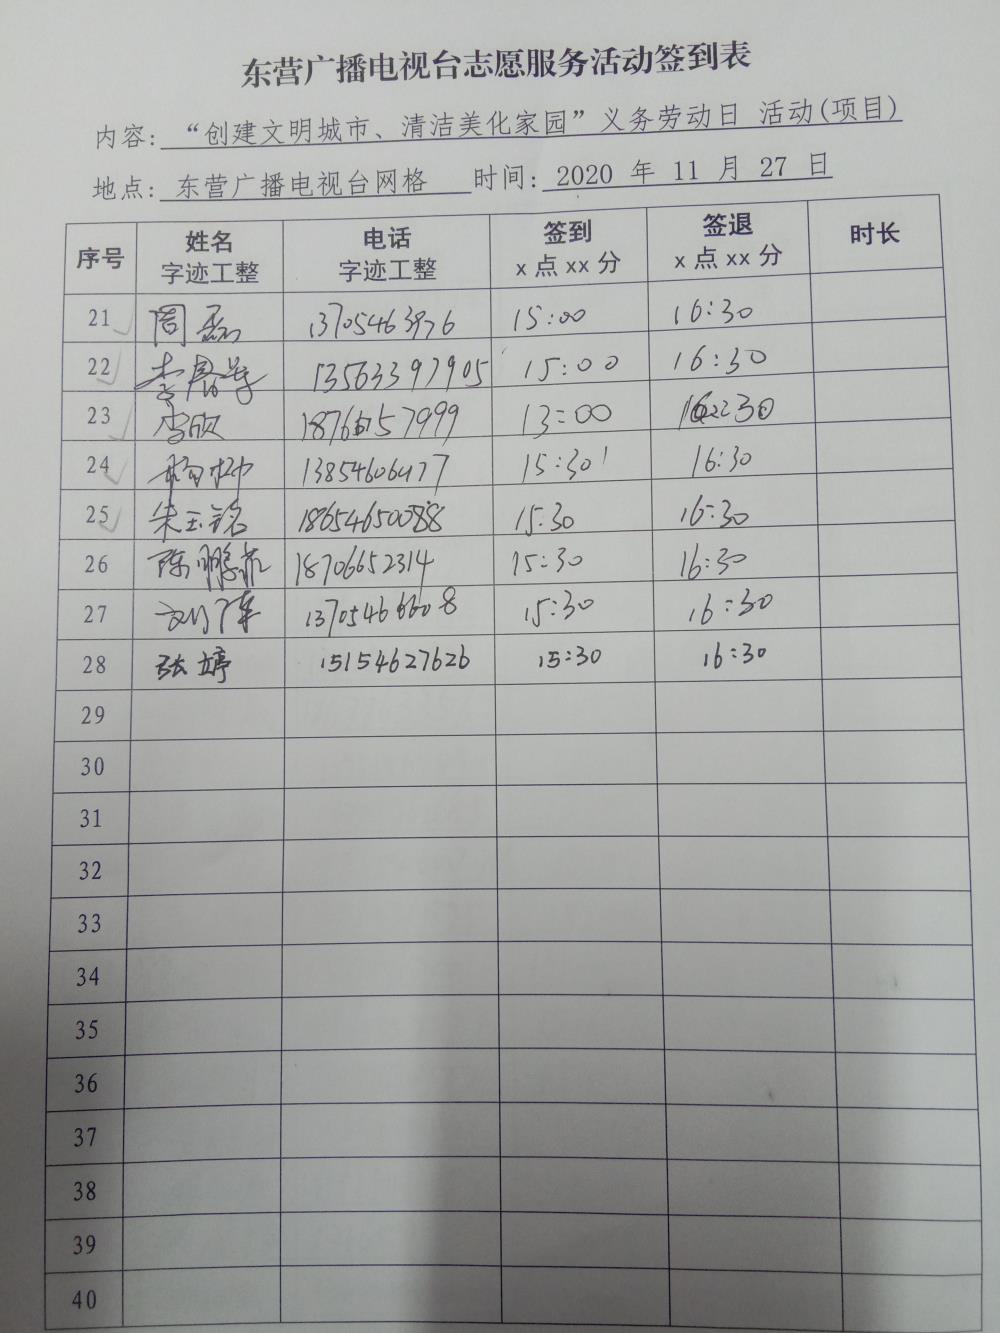 东营广播电视台志愿服务活动签到表
内容: “创建文明城市、清洁美化家园”义务劳动日 活动(项目)
地点: 东营广播电视台网格 时间: 2020 年 11 月 27 日
序号 姓名 电话 签到 签退 时长
字迹工整 字迹工整 x 点 xx 分 x 点 xx 分
21 周磊 13705463976 15:00 16:30
22 13563397905 15:00 16:30
23 李欣 13:00
24 15:30 16:30
25 朱玉铭 18654650088 15:30 16:30
26 陈鹏 18706652314 15:30 16:30
27 13705466608 15:30 16:30
28 张婷 15154627626 15:30 16:30
29
30
31
32
33
34
35
36
37
38
39
40